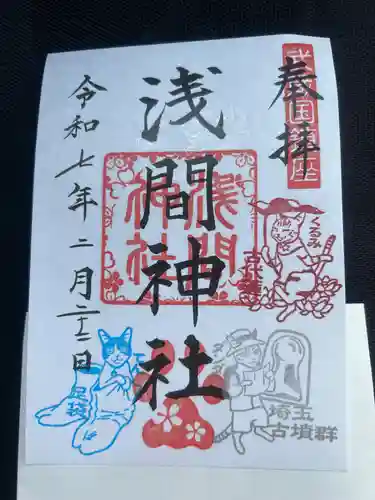 奉拝
武蔵国鎮座
浅間神社
浅間
神社
令和七年二月二十二日
くるみ
古代蓮
足袋
埼玉
古墳群